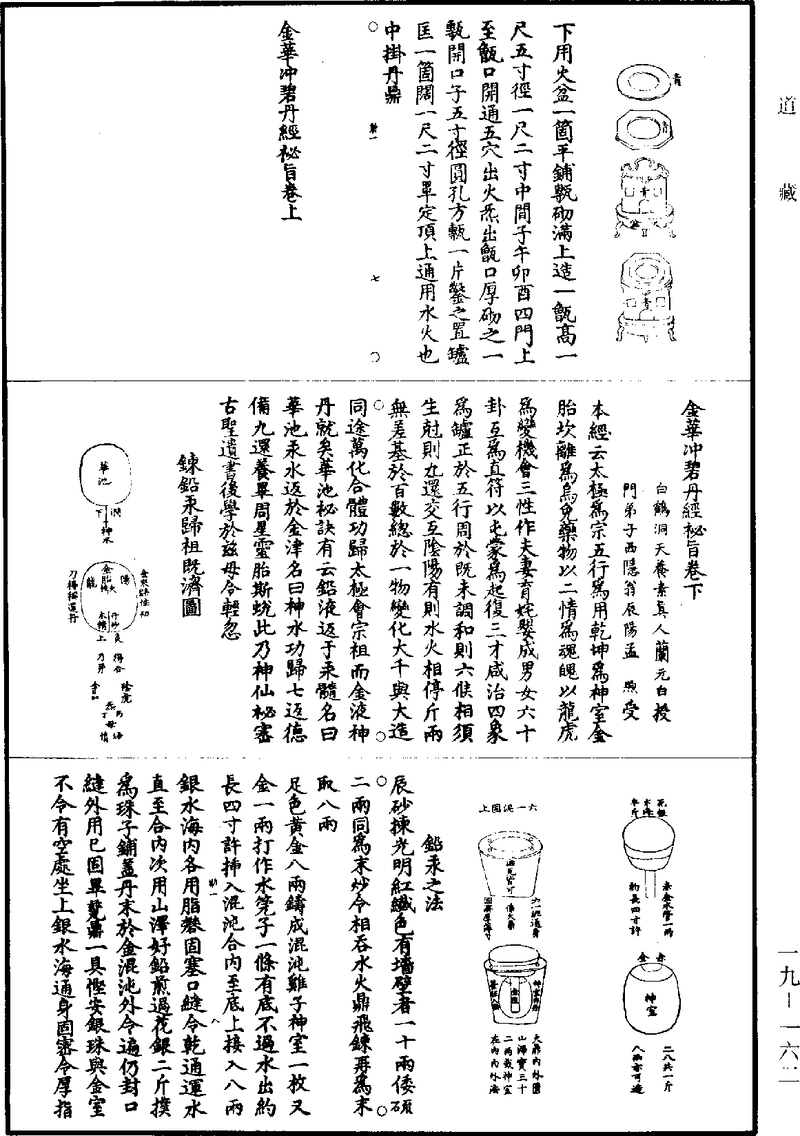 道藏
青
青
青
青
下用火盆一箇平鋪甎砌滿上造一甑高一
尺五寸徑一尺二寸中間子午卯酉四門上
至甑口開通五穴出火炁出甑口厚砌之一
甎開口子五寸徑圓孔方甎一片鑿之置罏
匡一箇闊一尺二寸單定頂上通用水火也
中掛丹鼎
七
金華冲碧丹經祕旨卷上
金華冲碧丹經祕旨卷下
白鶴洞天養素真人蘭元白授
門弟子西隱翁辰陽孟煦受
本經云太極爲宗五行爲用乾坤爲神室金
胎坎離爲烏兔藥物以二情爲魂魄以龍虎
爲變機會三性作夫妻育姹嬰成男女六十
卦互爲真符以屯蒙爲起復三才咸治四象
爲罏正於五行周於既未調和則六候相須
生尅則九還交互陰陽有則水火相停斤兩
無差基於百數總於一物變化大千與大造
同途萬化合體功歸太極會宗祖而金液神
丹就矣華池祕訣有云鉛液返于汞髓名曰
華池汞水返於金津名曰神水功歸七返德
備九還養畢周星靈胎斯蛻此乃神仙祕審
古聖遺書後學於兹毋令輕忽
鍊鉛汞歸祖既濟圖
華池
神水
上一泥固六
花銀水海半斤
赤金水管一兩
約長四寸許
赤金
神室
二八共一斤
鉛汞之法
辰砂揀光明紅纈色有墻壁者一十兩倭硫
二兩同爲末炒令相吞水火鼎飛鍊再爲末
取八兩
足色黄金八兩鑄成混沌雞子神室一枚又
金一兩打作水筦子一條有底不過水出約
長四寸許揷入混沌合内至底上接入八兩
銀水海内各用脂礬固塞口縫令乾通運水
直至合内次用山澤好鉛煎過花銀二斤撲
爲珠子鋪蓋丹末於金混沌外令遍仍封口
縫外用已固單甆鼎一具慳安銀珠與金室
不令有空處坐上銀水海通身固密令厚指
一九－一六二